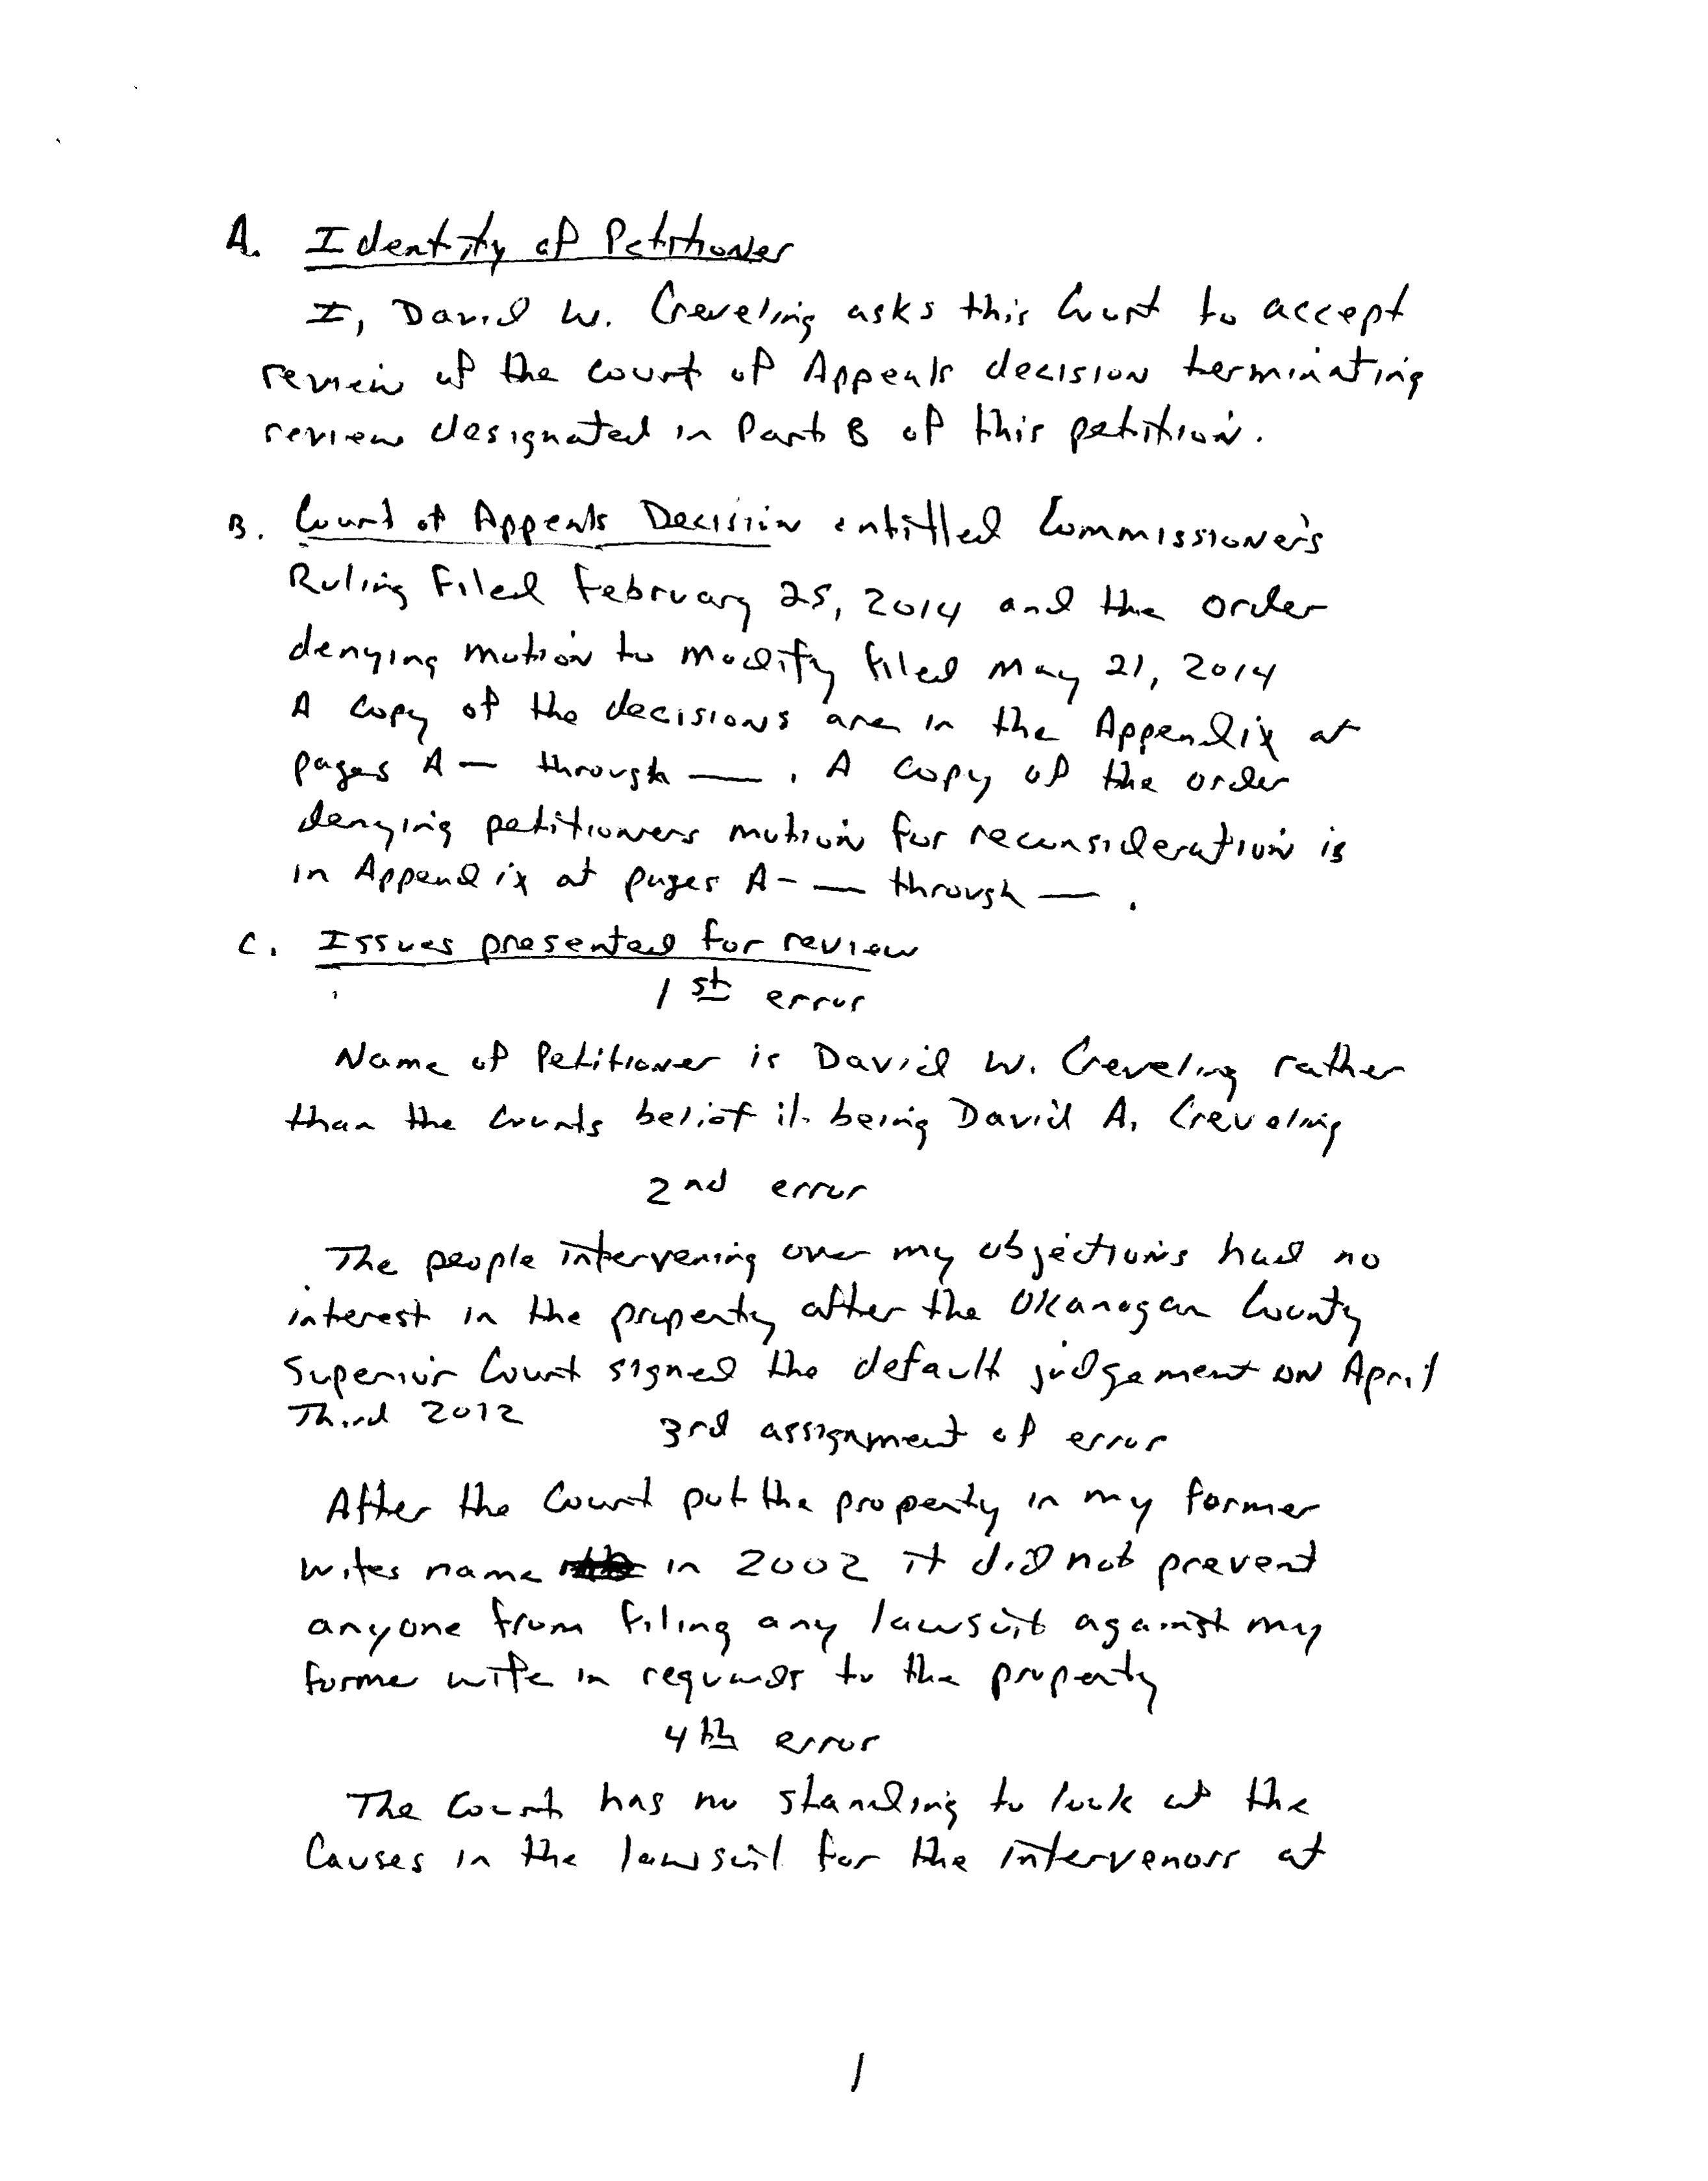 A. Identity of Petitioner
I, David W. Creveling asks this Court to accept
review of the court of Appeals decision terminating
review designated in Part B of this petition.
B. Court of Appeals Decision entitled Commissioner's
Ruling Filed February 25, 2014 and the order
denying motion to modify filed May 21, 2014
A copy of the decisions are in the Appendix at
pages A — through — . A copy of the order
denying petitioners motion for reconsideration is
in Appendix at pages A - — through — .
C. Issues presented for review
1st error
Name of Petitioner is David W. Creveling rather
than the Courts belief it being David A. Creveling
2nd error
The people intervening over my objections had no
interest in the property after the Okanogan County
Superior Court signed the default judgement on April
Third 2012
3rd assignment of error
After the Court put the property in my former
wifes name in 2002 it did not prevent
anyone from filing any lawsuit against my
former wife in regards to the property
4th error
The Court has no standing to look at the
Causes in the lawsuit for the intervenors at
1